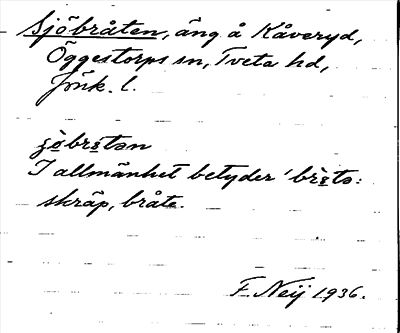 Sjöbråten, äng å Kåveryd,
Öggestorps sn, Tveta hd,
Jönk. l.
I allmänhet betyder
skräp, bråte.
F. Neij 1936.